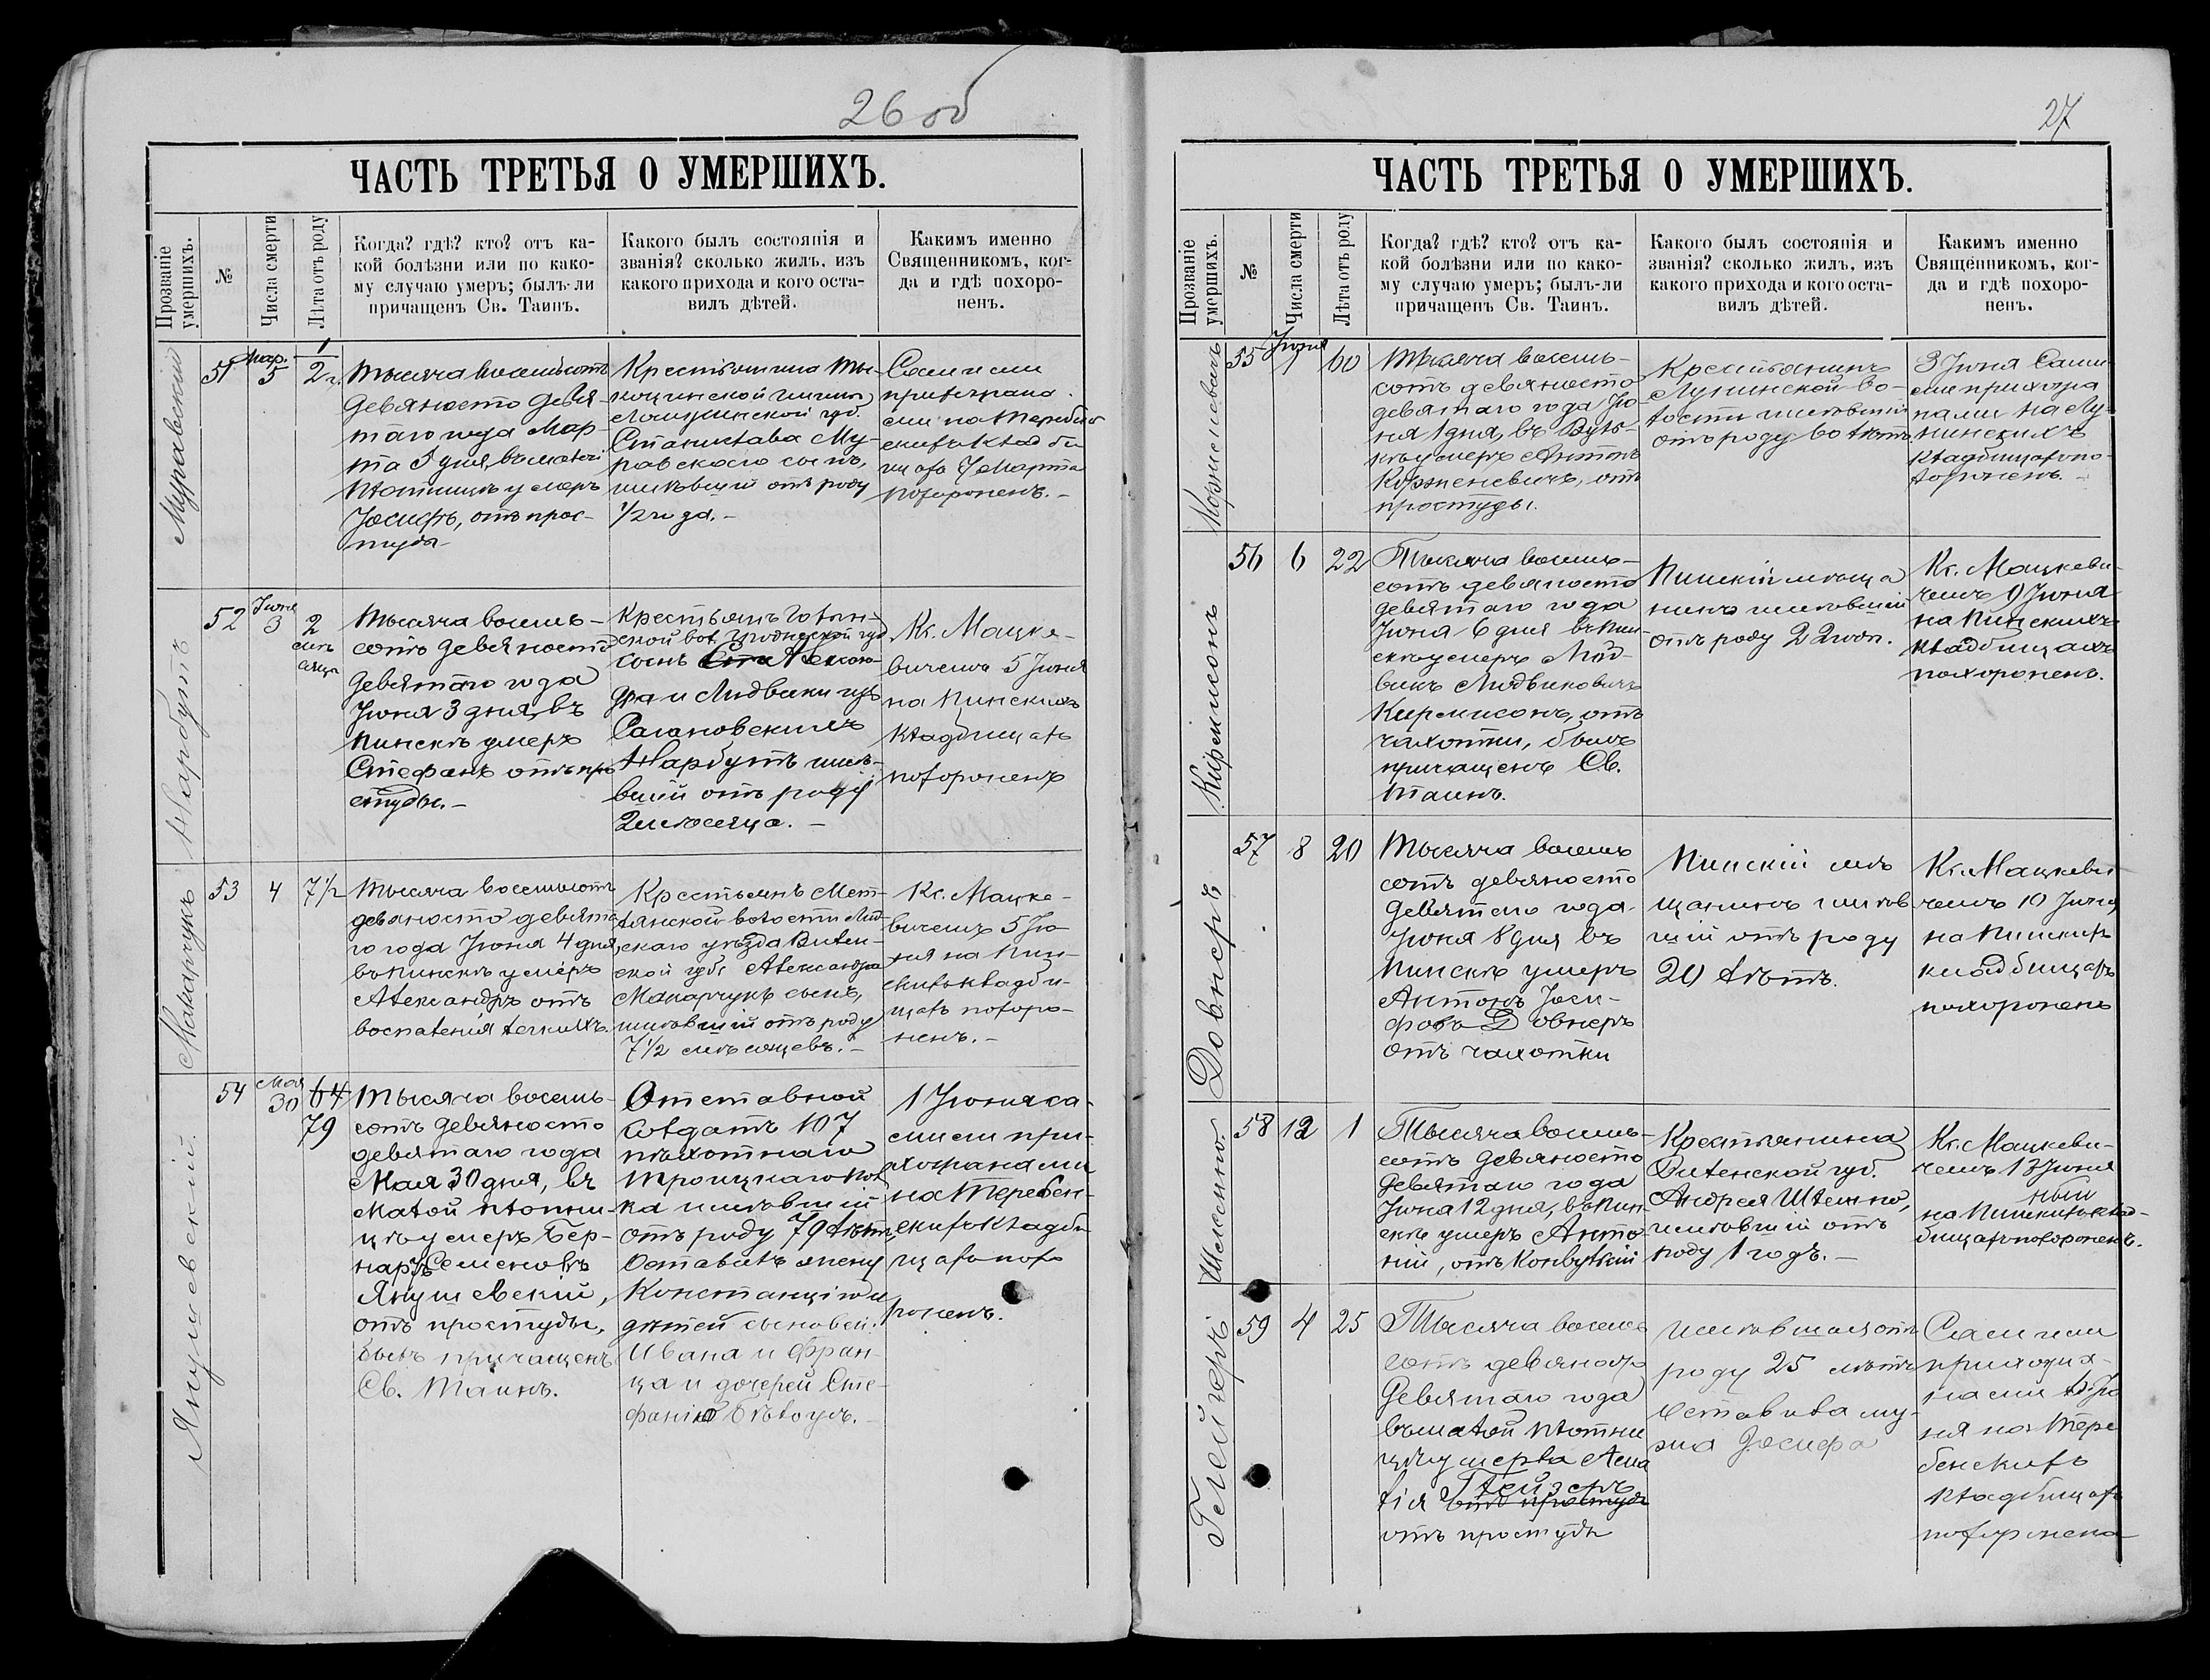 26 об
ЧАСТЬ ТРЕТЬЯ О УМЕРШИХЪ.
Прозваніе умершихъ.
№
Числа смерти
Лѣта отъ роду
Когда? гдѣ? кто? отъ ка-
кой болѣзни или по како-
му случаю умеръ; былъ-ли
причащенъ Св. Таинъ.
Какого былъ состоянія и
званія? сколько жилъ, изъ
какого прихода и кого оста-
вилъ дѣтей.
Какимъ именно
Священникомъ, ког-
да и гдѣ похоро-
ненъ.
Муравскій
51
Мар. 5
1/2 г.
Тысяча восемьсотъ
девяносто девя-
таго года Мар-
та 5 дня, въ малой
Плотницѣ умеръ
Іосифъ, отъ прос-
туды
Крестьянина
губ.
Станислава Му-
равскаго сынъ,
имѣвшій отъ роду
1/2 года. –
Самими
прихожана
ми на Теребенс
кихъ кладби
щахъ 7 Марта
похороненъ. –
Нарбутъ
52
Іюня 3
2 мѣсяца
Тысяча восемь-
сотъ девяносто
девятаго года
Іюня 3 дня, въ
Пинскѣ умеръ
Стефанъ отъ про
студы. –
Крестьянъ
ской вол. Гродненской губ
сынъ Алексан-
дра и Людвики изъ
Сагановскихъ
Нарбутъ имѣ-
вшій отъ роду
2 мѣсяца. –
Кс. Мацке-
вичемъ 5 Іюня
на Пинскихъ
кладбищахъ
похороненъ
Макарчукъ
53
4
7 1/2
Тысяча восемьсотъ
девяносто девята
го года Іюня 4 дня,
въ Пинскѣ умеръ
Александръ отъ
воспаленія легкихъ.
Крестьянъ
волости Лид-
скаго уѣзда Вилен-
ской губ. Александра
Макарчукъ сынъ,
имѣвшій отъ роду
7 1/2 мѣсяцевъ. –
Кс. Мацке-
вичемъ 5 Ію-
ня на Пин-
скихъ кладби-
щахъ похоро-
ненъ. –
Янушевскій
54
Мая 30
64
79
Тысяча восемь-
сотъ девяносто
девятаго года
Мая 30 дня, въ
Малой Плотни-
цѣ умеръ Бер-
нардъ Семеновъ
Янушевскій,
отъ простуды,
былъ причащенъ
Св. Таинъ.
Отставной
солдатъ 107
пѣхотнаго
Троицкаго пол
ка имѣвшій
отъ роду 79 лѣтъ
Оставилъ жену
Констанцію и
дѣтей сыновей:
Ивана и Фран-
ца и дочерей Сте-
фанію
1 Іюня са-
мими при-
хожанами
на Теребен-
скихъ кладби
щахъ похо
роненъ.
27
ЧАСТЬ ТРЕТЬЯ О УМЕРШИХЪ.
Прозваніе умершихъ.
№
Числа смерти
Лѣта отъ роду
Когда? гдѣ? кто? отъ ка-
кой болѣзни или по како-
му случаю умеръ; былъ-ли
причащенъ Св. Таинъ.
Какого былъ состоянія и
званія? сколько жилъ, изъ
какого прихода и кого оста-
вилъ дѣтей.
Какимъ именно
Священникомъ, ког-
да и гдѣ похоро-
ненъ.
55
Іюня 1
60
Тысяча восемь-
сотъ девяносто
девятаго года Ію-
ня 1 дня, въ
умеръ Антонъ
Корженевичъ, отъ
простуды.
Крестьянинъ
Лунинской во-
лости имѣвшій
отъ роду 60 лѣтъ
3 Іюня Сами
ми прихожа
нами на Лу-
нинскихъ
кладбищахъ по-
хороненъ. –
Киркисонъ
56
6
22
Тысяча восемь-
сотъ девяносто
девятаго года
Іюня 6 дня въ Пин-
скѣ умеръ Люд-
викъ Людвиковичъ
отъ
чахотки, былъ
причащенъ Св.
Таинъ.
Пинскій мѣща
нинъ имѣвшій
отъ роду 22 год.
Кс. Мацкеви-
чемъ 9 Іюня
на Пинскихъ
кладбищахъ
похороненъ.
Довнеръ
57
8
20
Тысяча восемь
сотъ девяносто
девятаго года
Іюня 8 дня въ
Пинскѣ умеръ
Антонъ Іоси-
фовъ Довнеръ
отъ чахотки
Пинскій мѣ
щанинъ имѣв
шій отъ роду
20 лѣтъ.
Кс. Мацкеви-
чемъ 10 Іюня
на Пинскихъ
кладбищахъ
похороненъ
58
12
1
Тысяча восемь-
сотъ девяносто
девятаго года
Іюня 12 дня, въ Пин-
скѣ умеръ Анто-
ній, отъ конвульсій
Крестьянина
Виленской губ.
Андрея
имѣвшій отъ
роду 1 годъ. –
Кс. Мацкеви-
чемъ 13 Іюня
на Пинскихъ клад-
бищахъ похороненъ.
59
4
25
Тысяча восемь
сотъ девяносто
девятаго года
въ малой Плотни
цѣ умерла Ама
лія Глейзеръ
отъ простуды
отъ простуды
Имѣвшая отъ
роду 25 лѣтъ
Оставила му-
жа Іосифа
Самими
прихожа-
нами Ію
ня на Тере
бенскихъ
кладбищахъ
похоронена